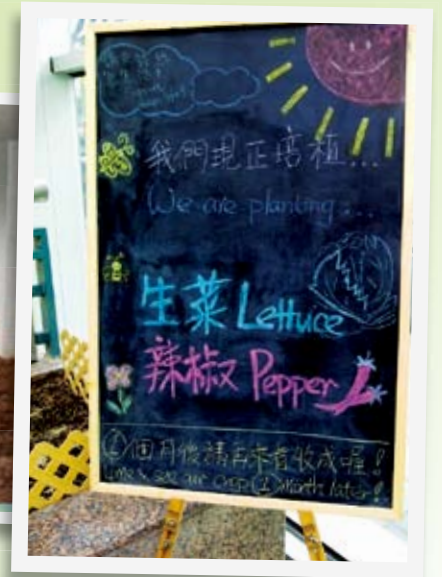 我們現正培植...
We are planting...
生菜 Lettuce
辣椒 Pepper
①個月後請再來看收成喔!
Come & see our crop ① month later!